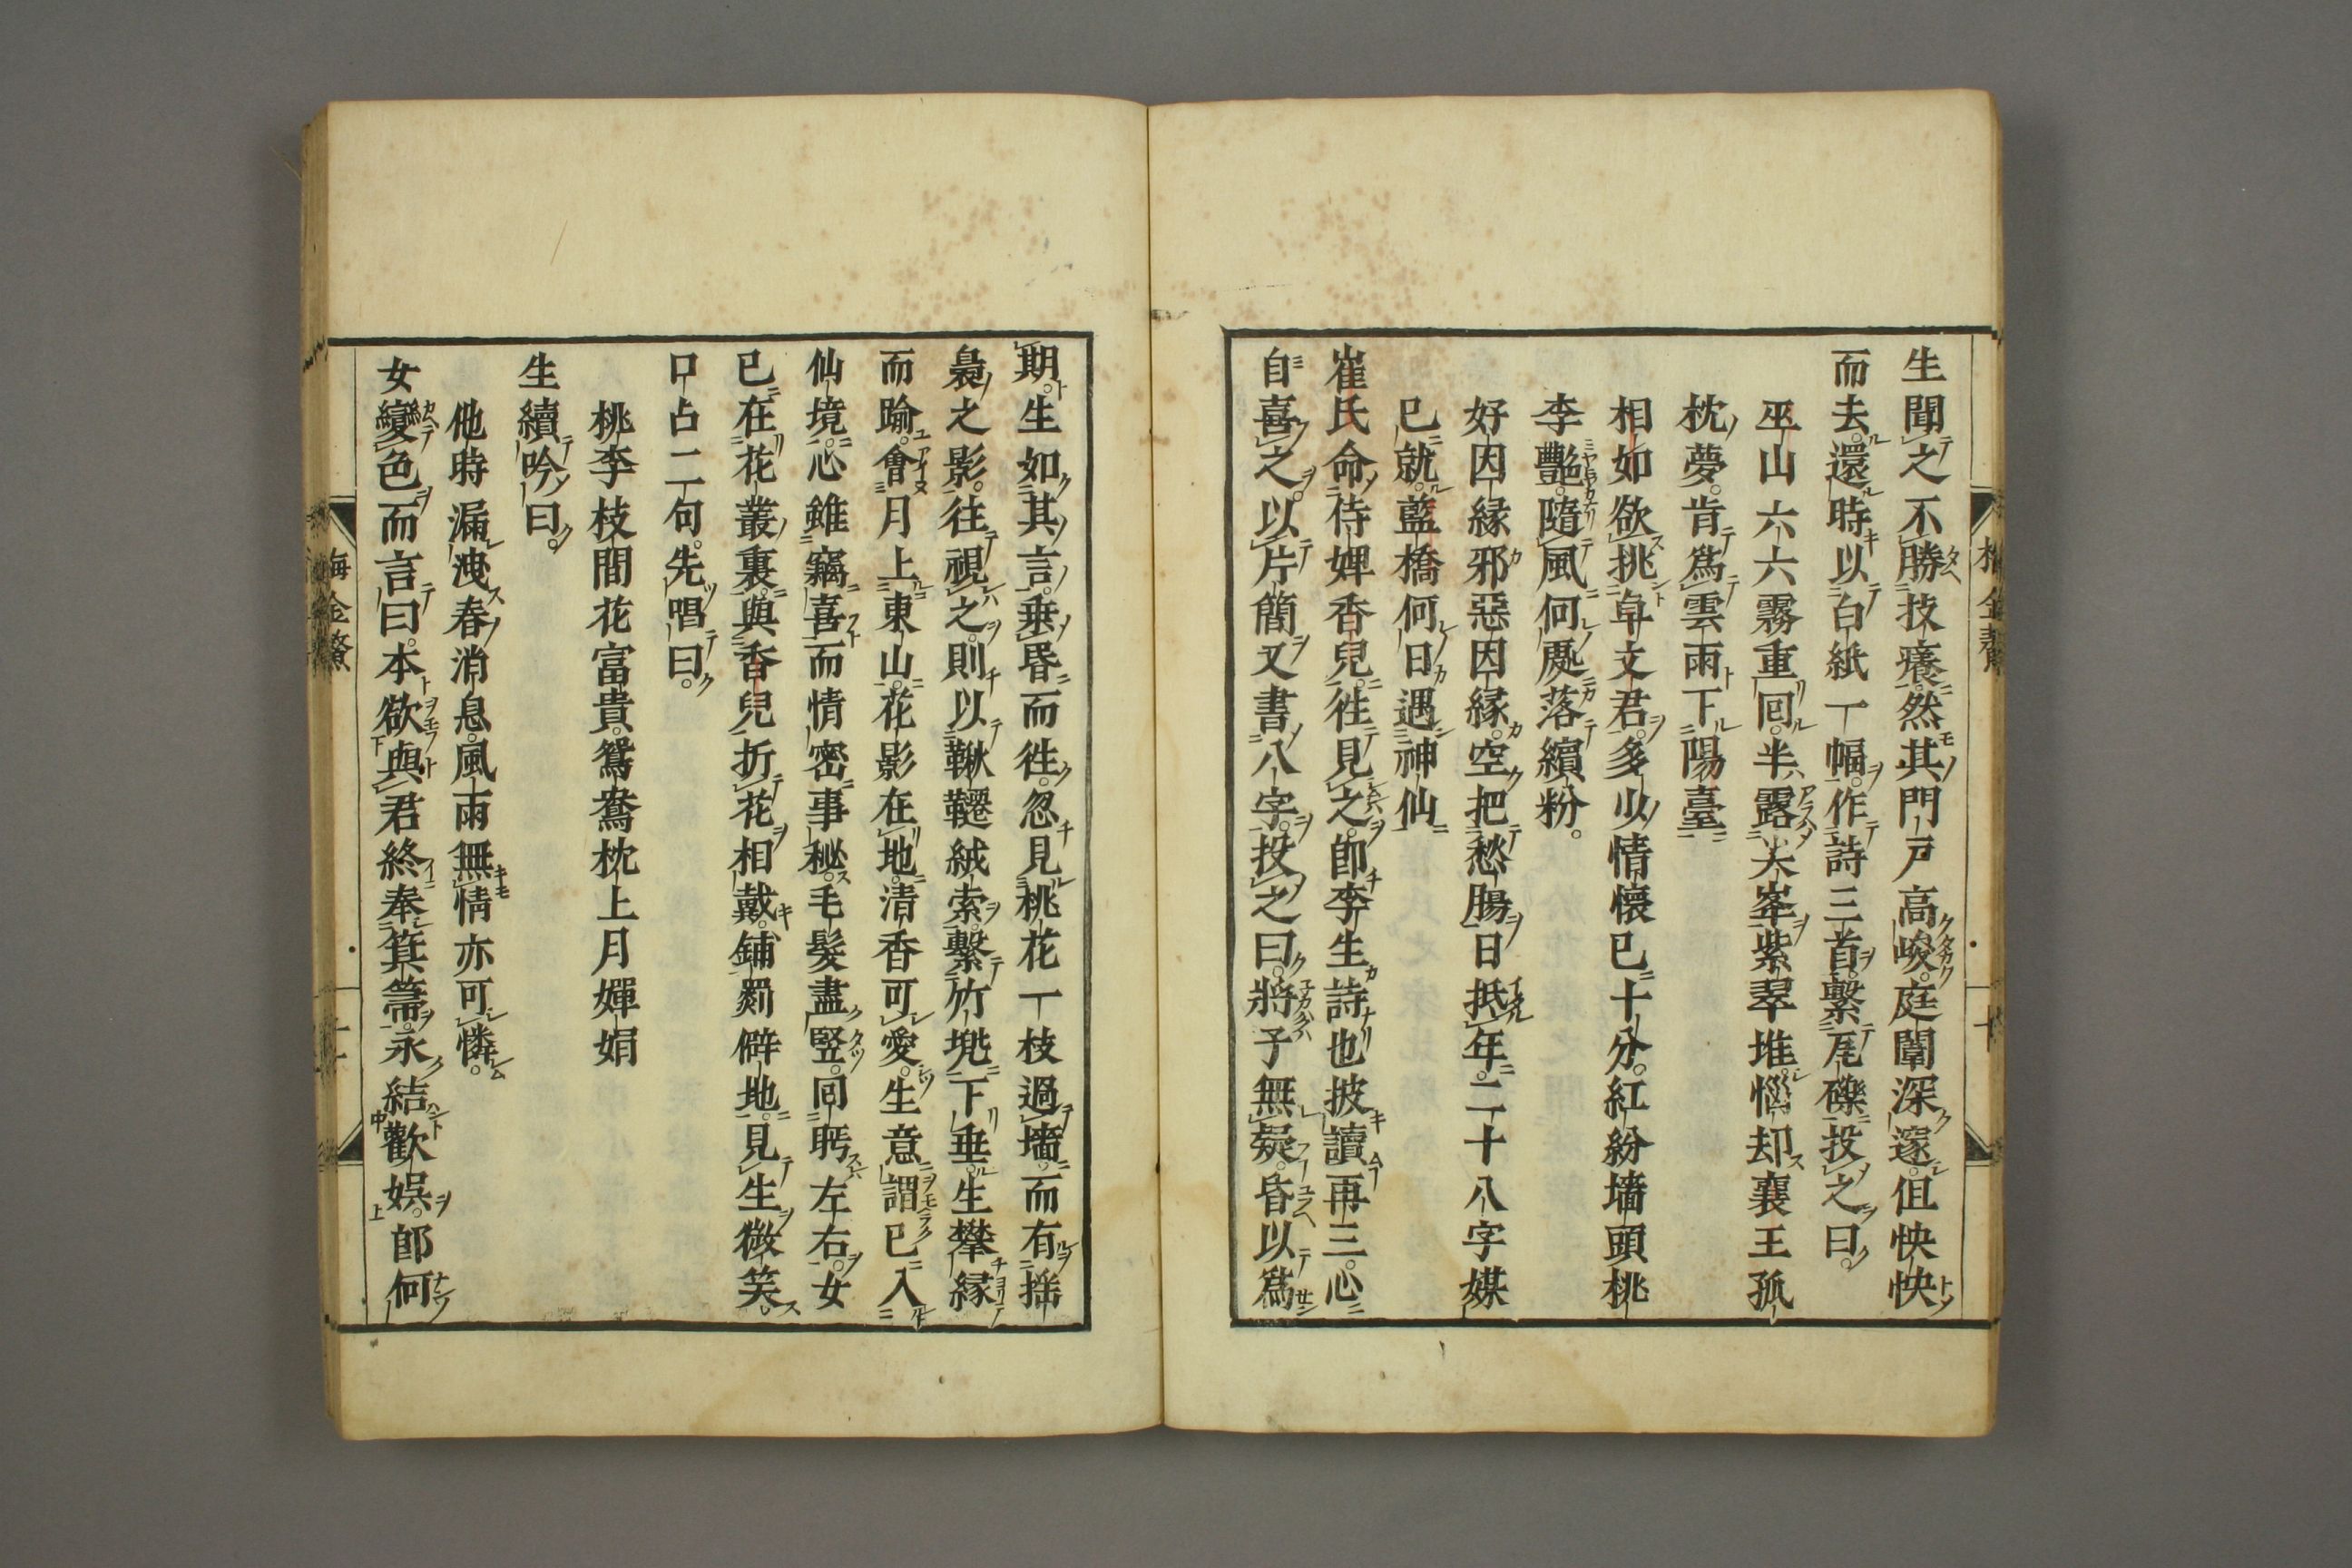 生聞之不勝技癢然其門戸高峻庭闈深邃但怏怏
而去還時以白紙一幅作詩三首繫瓦礫投之曰
巫山六六霧重回半露尖峯紫翠堆惱却襄王孤
枕夢肯爲雲雨下陽臺
相如欲挑卓文君多少情懷已十分紅紛墻頭桃
李艷隨風何處落繽粉
好因緣邪惡因緣空把愁腸日抵年二十八字媒
已就藍橋何日遇神仙
崔氏命侍婢香兒往見之卽李生詩也披讀再三心
自喜之以片簡又書八字投之曰將子無疑昏以爲
期生如其言乗昏而往忽見桃花一枝過墻而有搖
裊之影往視之則以鞦韆絨索繫竹兠下垂生攀緣
而踰會月上東山花影在地清香可愛生意謂已入
仙境心雖竊喜而情密事秘毛髮盡竪回眄左右女
已在花叢裏與香兒折花相戴鋪罽僻地見生微笑
口占二句先唱曰
桃李枝間花富貴鴛鴦枕上月嬋娟
生續吟曰
他時漏洩春消息風雨無情亦可憐
女變色而言曰本欲與君終奉箕箒永結歡娯郎何
梅金鰲